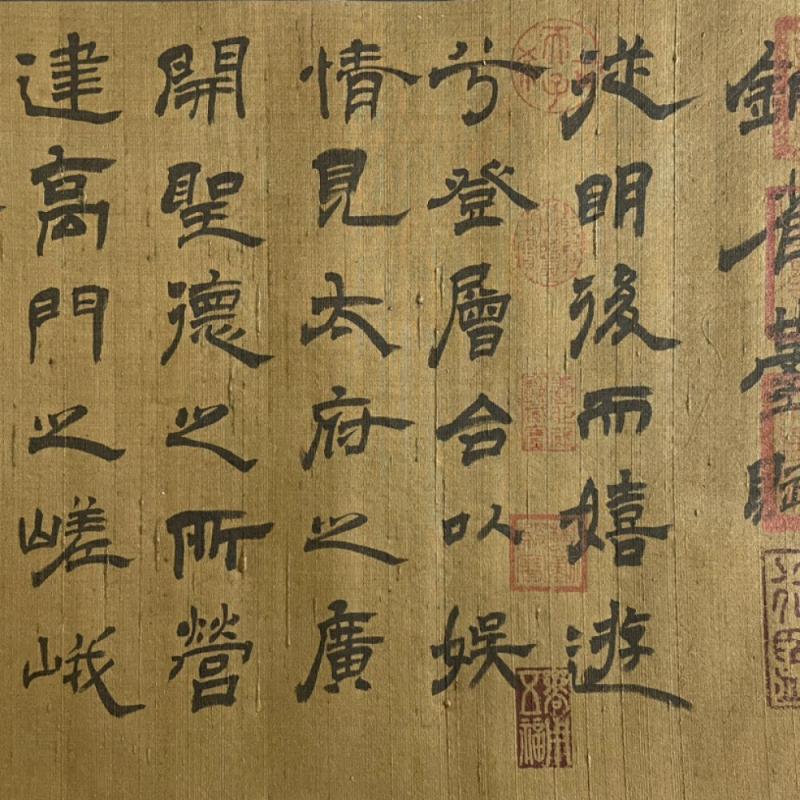 銅雀臺賦
從明後而嬉遊
兮登層台以娛
情見太府之廣
開聖德之所營
建高門之嵯峨